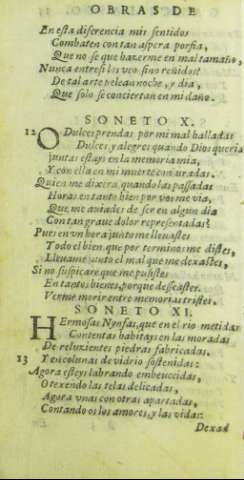 OBRAS DE
En esta diferencia mis sentidos
Combaten con tan aspera porfia,
Que no se que hazerme en mal tamaño,
Nunca entre si los veo, sino reñidos:
De tal arte pelean noche, y dia,
Que solo se conciertan en mi daño.
SONETO X.
12 O Dulces prendas por mi mal halladas
Dulces, y alegres quando Dios queria
juntas estays en la memoria mia,
Y con ella en mi muerte conjuradas.
Quien me dixera, quando las passadas
Horas en tanto bien por vos me via,
Que me auiades de ser en algun dia
Con tan graue dolor representadas?
Pues en vn hora junto me lleuastes
Todo el bien, que por terminos me distes,
Lleuame junto el mal que me dexastes,
Si no suspicare que me pusistes
En tantos bienes, porque desseastes
Verme morir entre memorias tristes.
SONETO XI.
HErmosas Nynfas, que en el rio metidas
Contentas habitays en las moradas
De reluzientes piedras fabricadas,
13 Y en colunas de vidrio sostenidas:
Agora esteys labrando embeuecidas,
O texendo las telas delicadas,
Agora vnas con otras apartadas,
Contando os los amores, y las vidas:
Dexad